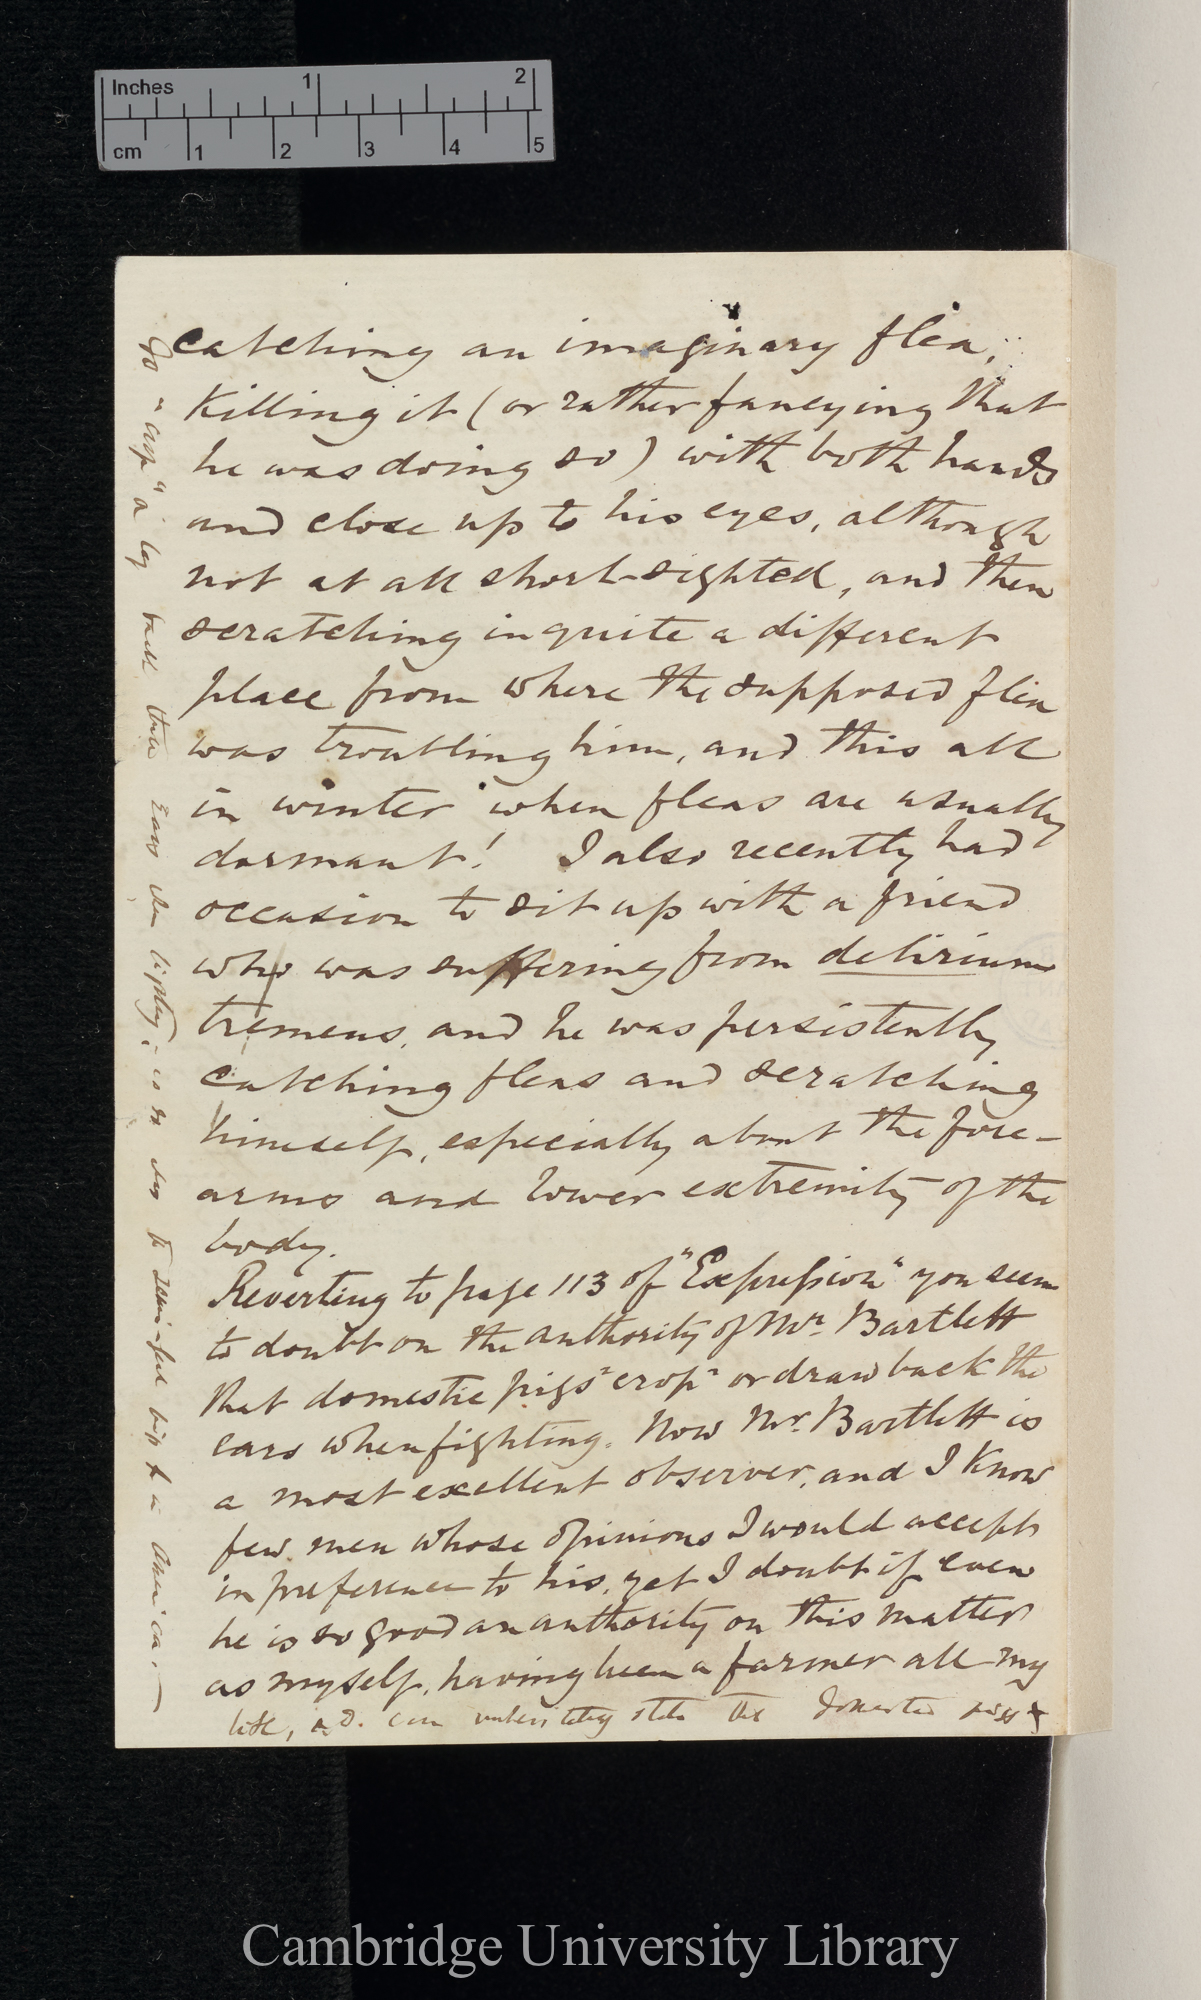 Inches 1 2
cm 1 2 3 4 5
catching an imaginary flea;
killing it (or rather fancying that
he was doing so) with both hands
and close up to his eyes, although
not at all short-sighted, and then
scratching in quite a different
place from where the supposed flea
was troubling him, and this all
in winter when fleas are usually
dormant! I also recently had
occasion to sit up with a friend
who was suffering from delirium
tremens, and he was persistently
catching fleas and scratching
himself, especially about the fore-
arms and lower extremity of the
body.
Reverting to page 113 of "Expression" you seem
to doubt on the authority of Mr. Bartlett
that domestic pigs "crop" or draw back the
ears when fighting. Now Mr. Bartlett is
a most excellent observer, and I know
few men whose opinions I would accept
in preference to his, yet I doubt if even
he is so good an authority on this matter
as myself, having been a farmer all my
life, and can state the domestic pigs
do "crop" or lay back their ears when fighting; as do the semi-feral pigs in America.—
Cambridge University Library